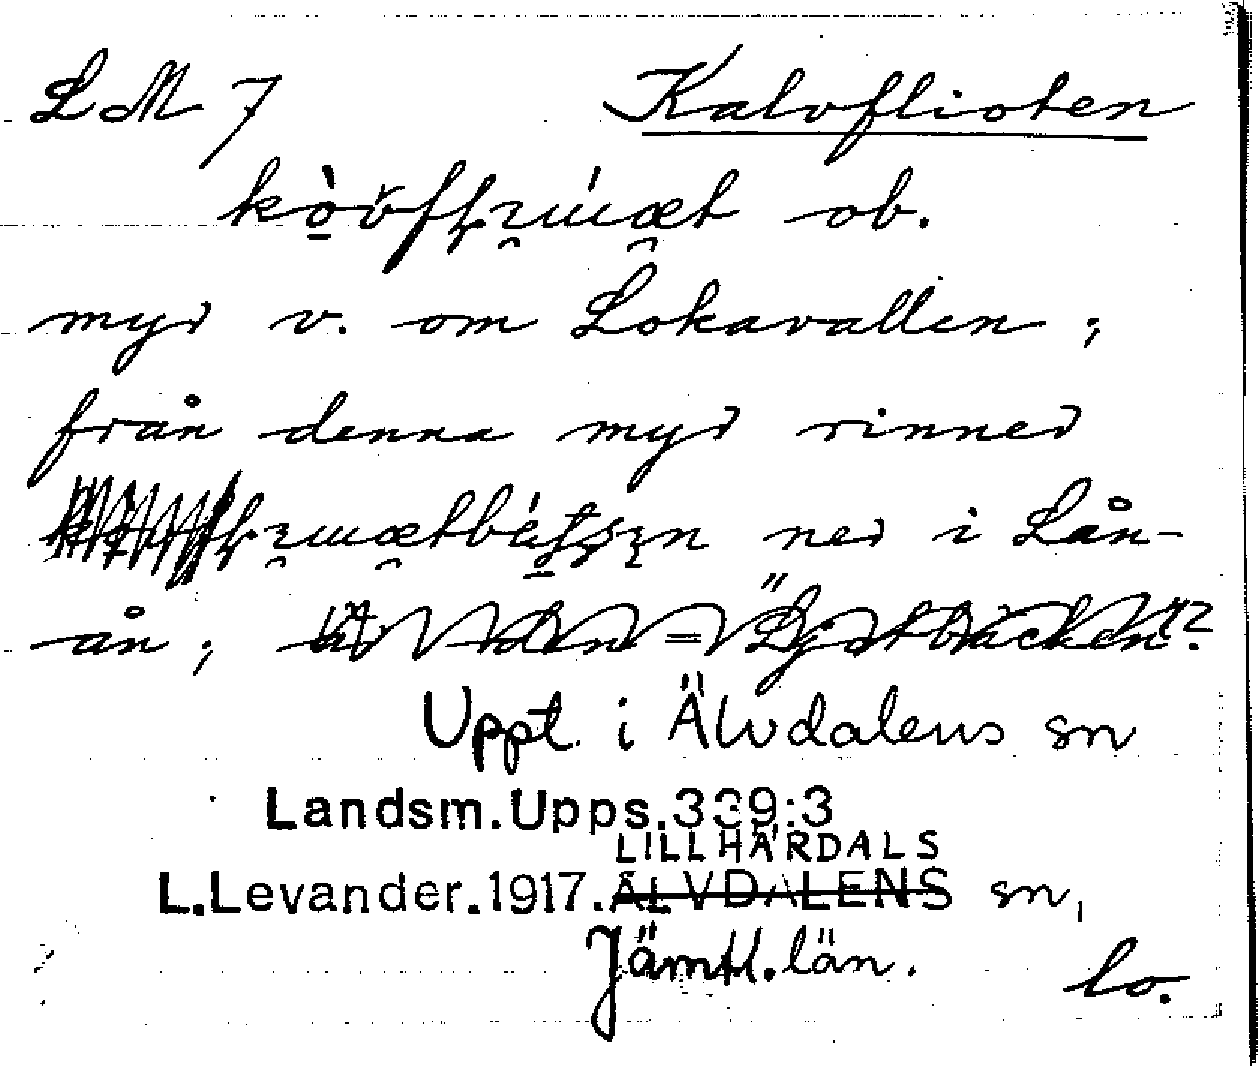 LM 7 Kalvflioten
ob.
myr v. om Lokavallen;
från denna myr rinner
ner i Lån-
ån;
Uppt. i Älvdalens sn
Landsm. Upps. 339:3
LILLHÄRDALS
L. Levander. 1917. ÄLVDALENS sn,
Jämtl. län.
lo.